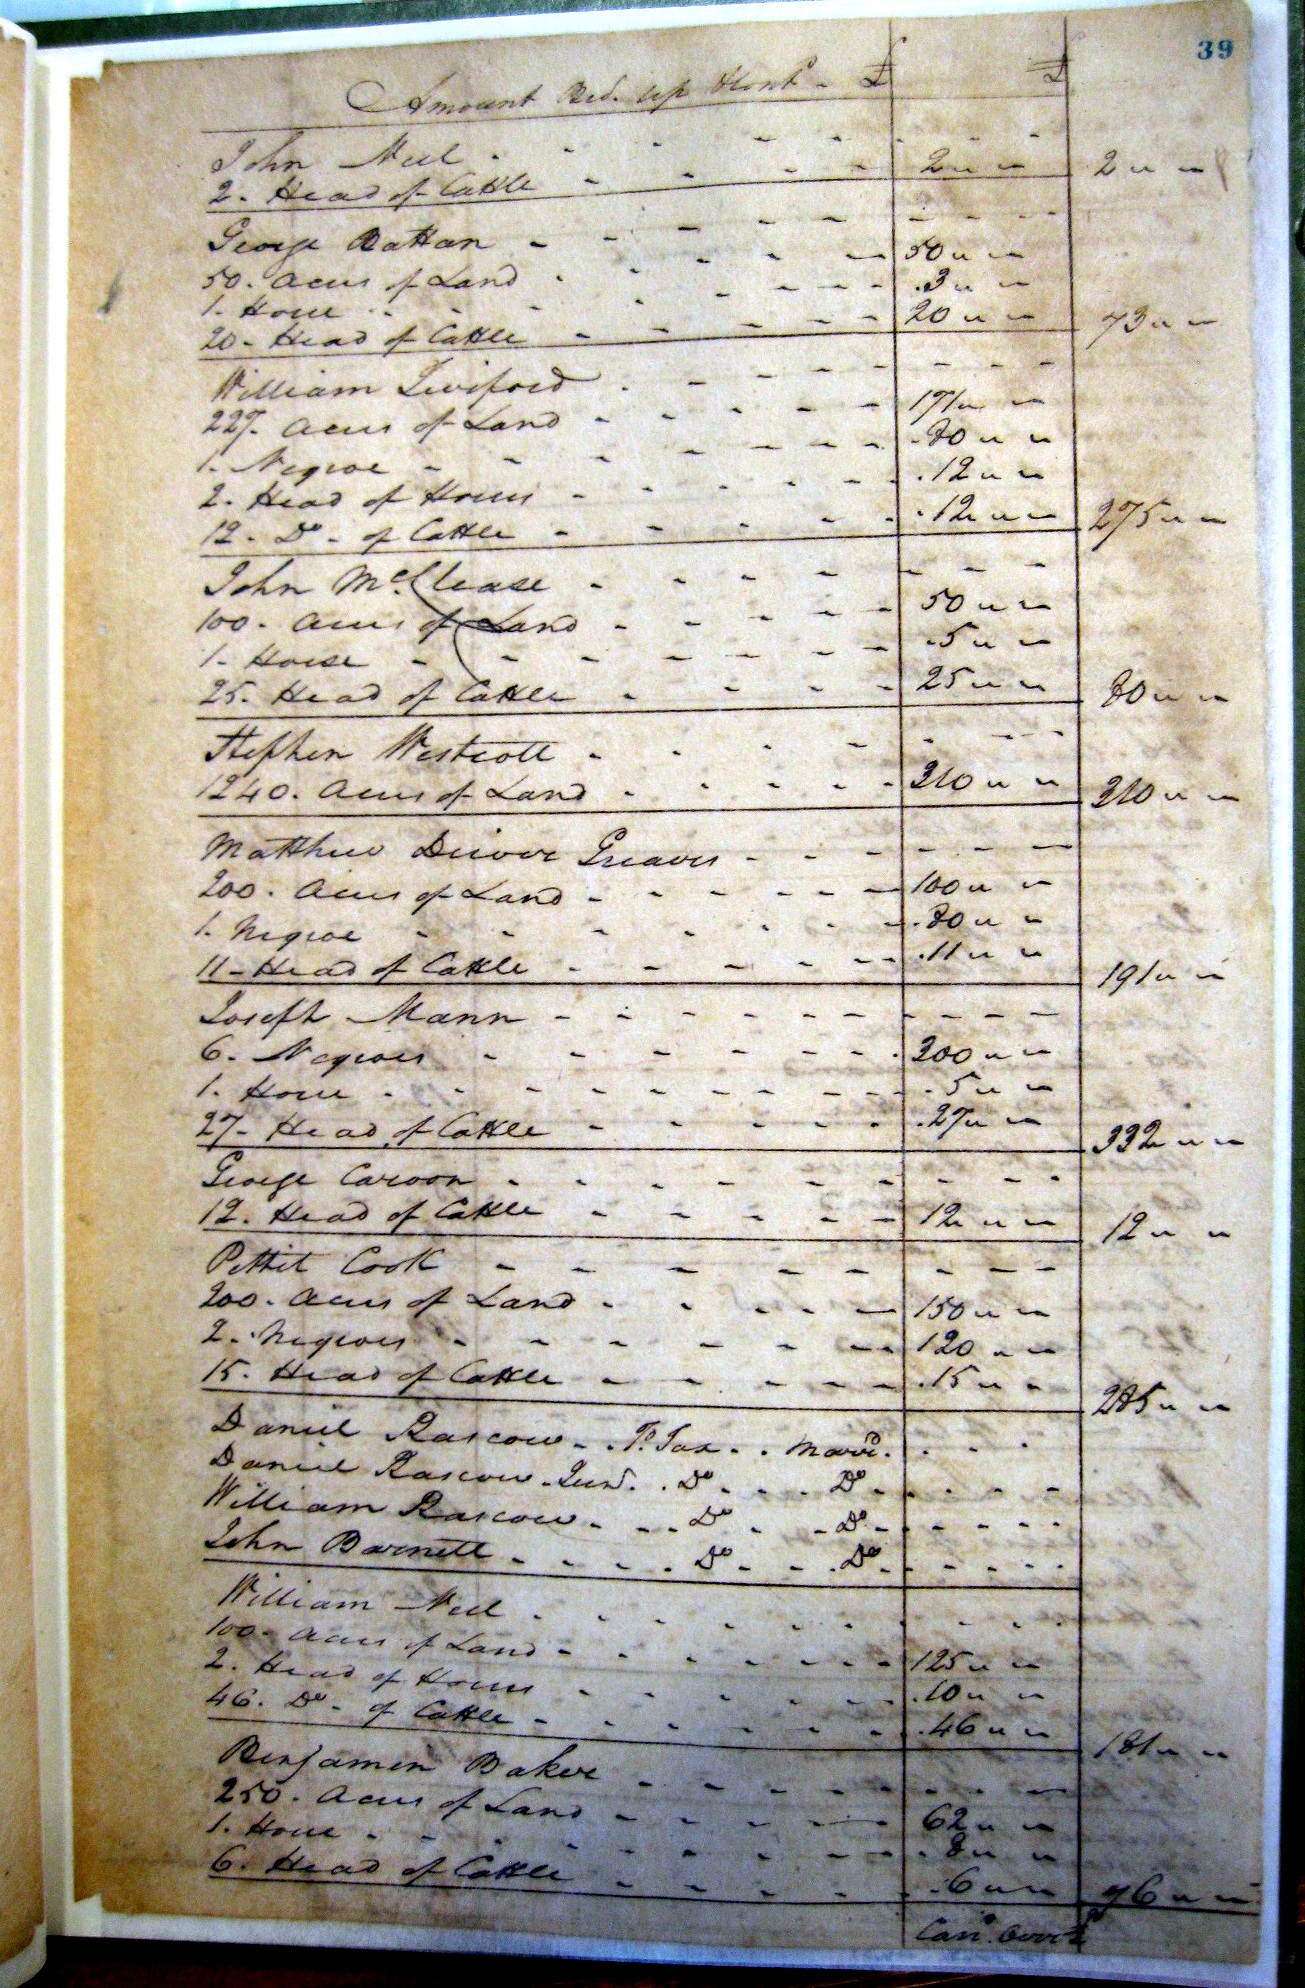 39
Amount Brd. up Hont. - £ £
John Neel
2. Head of Cattle 2 " " 2 " "
George Battan
50. Acres of Land 50 " "
1. Horse .3 " "
20. Head of Cattle 20 " " 73 " "
William Twiford
227. Acres of Land 171 " "
1. Negroe .80 " "
2. Head of Horses .12 " "
12. Do. of Cattle .12 " " 275 " "
John McClease
100. Acres of Land 50 " "
1. Horse .5 " "
25. Head of Cattle 25 " " 80 " "
Stephen Westcott
1240. Acres of Land 310 " " 310 " "
Matthew Greaves
200. Acres of Land 100 " "
1. Negroe .80 " "
11. Head of Cattle .11 " " 191 " "
Joseph Mann
6. Negroes 300 " "
1. Horse .5 " "
27. Head of Cattle .27 " " 332 " "
George Caroon
12. Head of Cattle 12 " " 12 " "
Pettit Cook
200. Acres of Land 150 " "
2. Negroes 120 " "
15. Head of Cattle .15 " " 285 " "
Daniel Rascow P. Tax Marrd.
Daniel Rascow Junr. Do Do
William Rascow Do Do
John Barnett Do Do
William Neel
100. Acres of Land 125 " "
2. Head of Horses .10 " "
46. Do. of Cattle .46 " " 181 " "
Benjamen Baker
250. Acres of Land 62 " "
1. Horse .8 " "
6. Head of Cattle .6 " " 76 " "
Card. Overd.